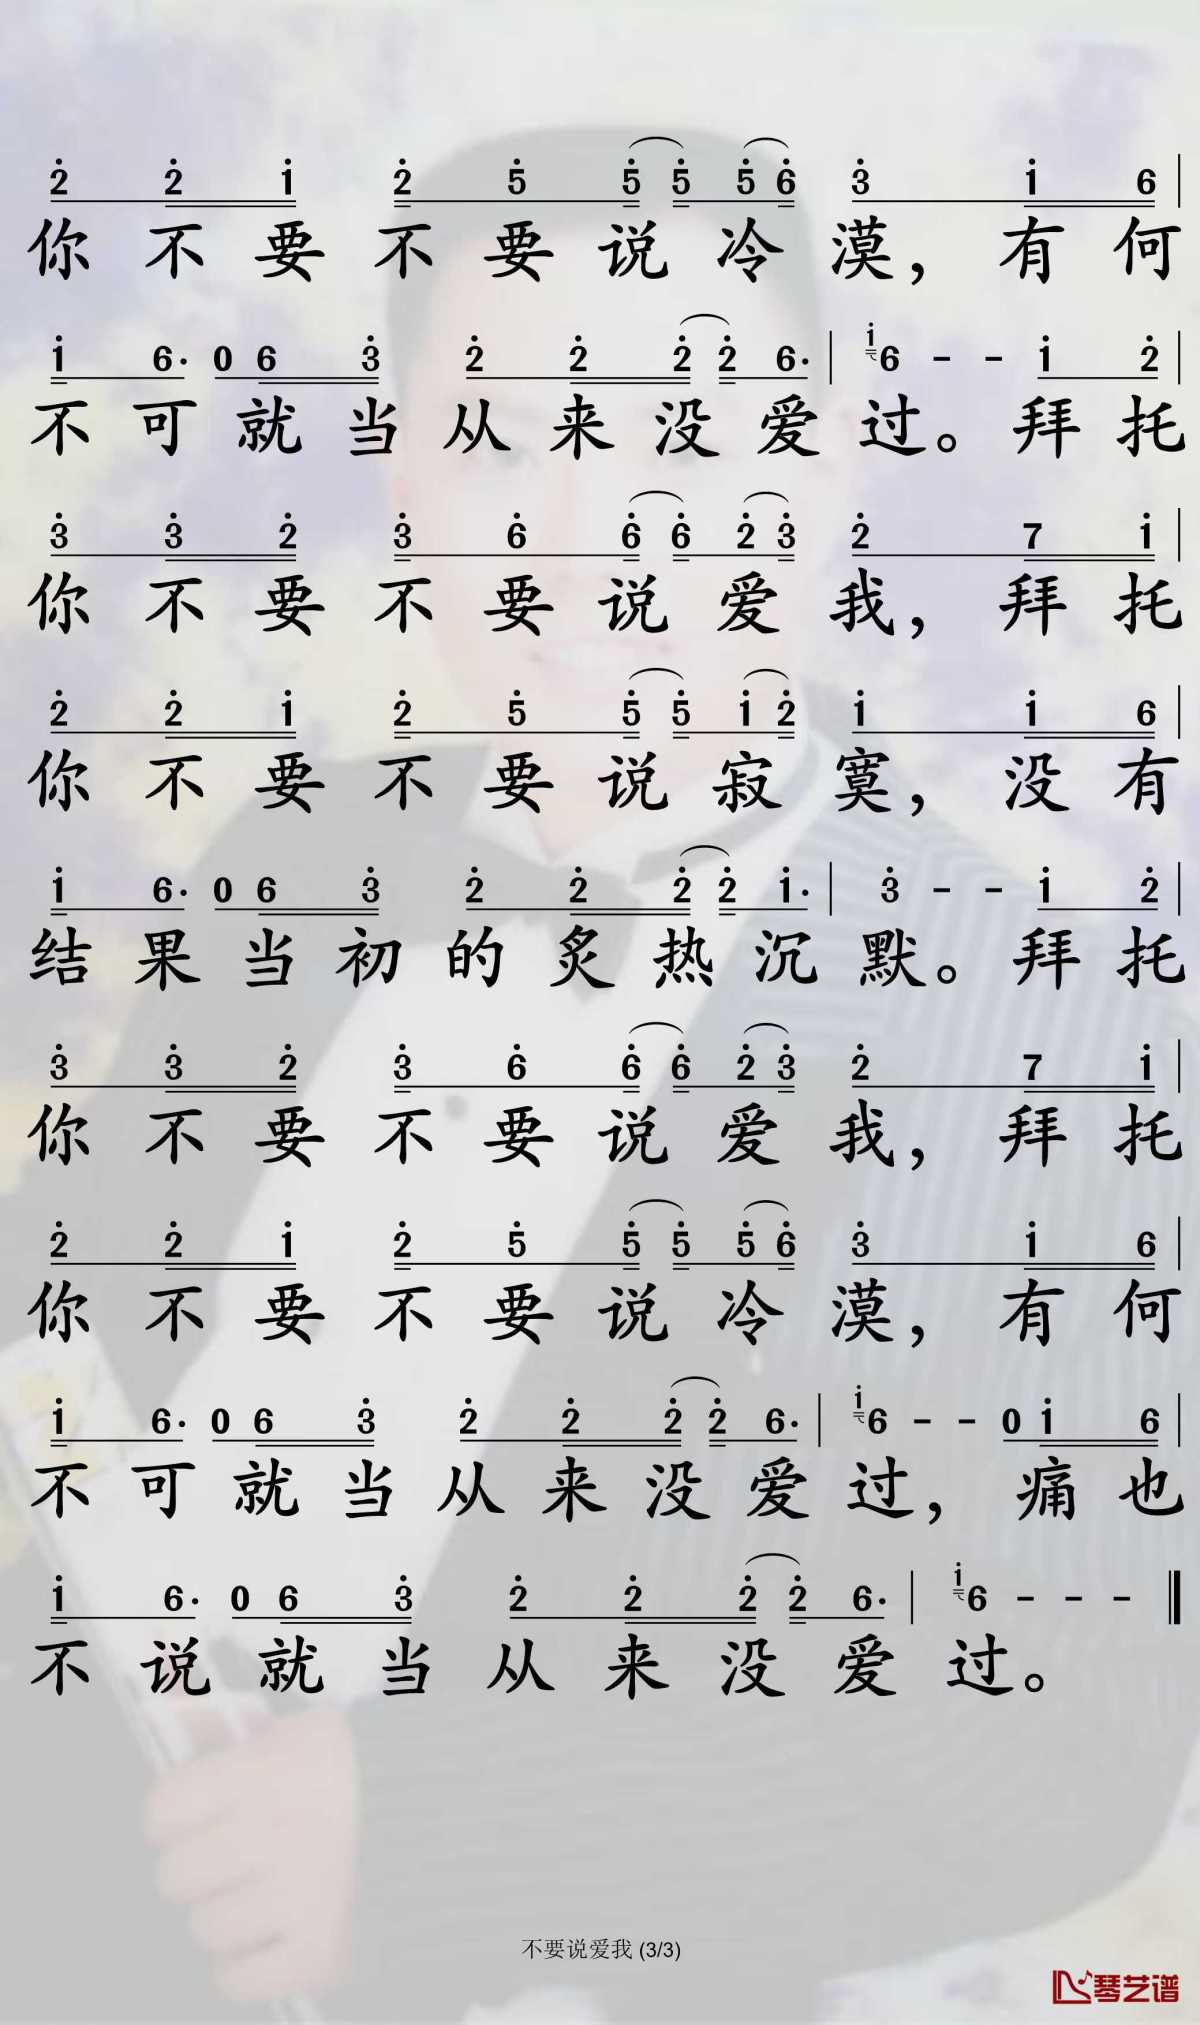 2 2 1 2 5 5 5 5 6 3 1 6
你不要不要说冷漠，有何
1 6· 0 6 3 2 2 2 2 6· 1 6 - - 1 2
不可就当从来没爱过。拜托
3 3 2 3 6 6 6 2 3 2 7 1
你不要不要说爱我，拜托
2 2 1 2 5 5 5 1 2 1 1 6
你不要不要说寂寞，没有
1 6· 0 6 3 2 2 2 2 1· 3 - - 1 2
结果当初的炙热沉默。拜托
3 3 2 3 6 6 6 2 3 2 7 1
你不要不要说爱我，拜托
2 2 1 2 5 5 5 5 6 3 1 6
你不要不要说冷漠，有何
1 6· 0 6 3 2 2 2 2 6· 1 6 - - 0 1 6
不可就当从来没爱过，痛也
1 6· 0 6 3 2 2 2 2 6· 1 6 - - -
不说就当从来没爱过。
不要说爱我 (3/3)
琴艺谱